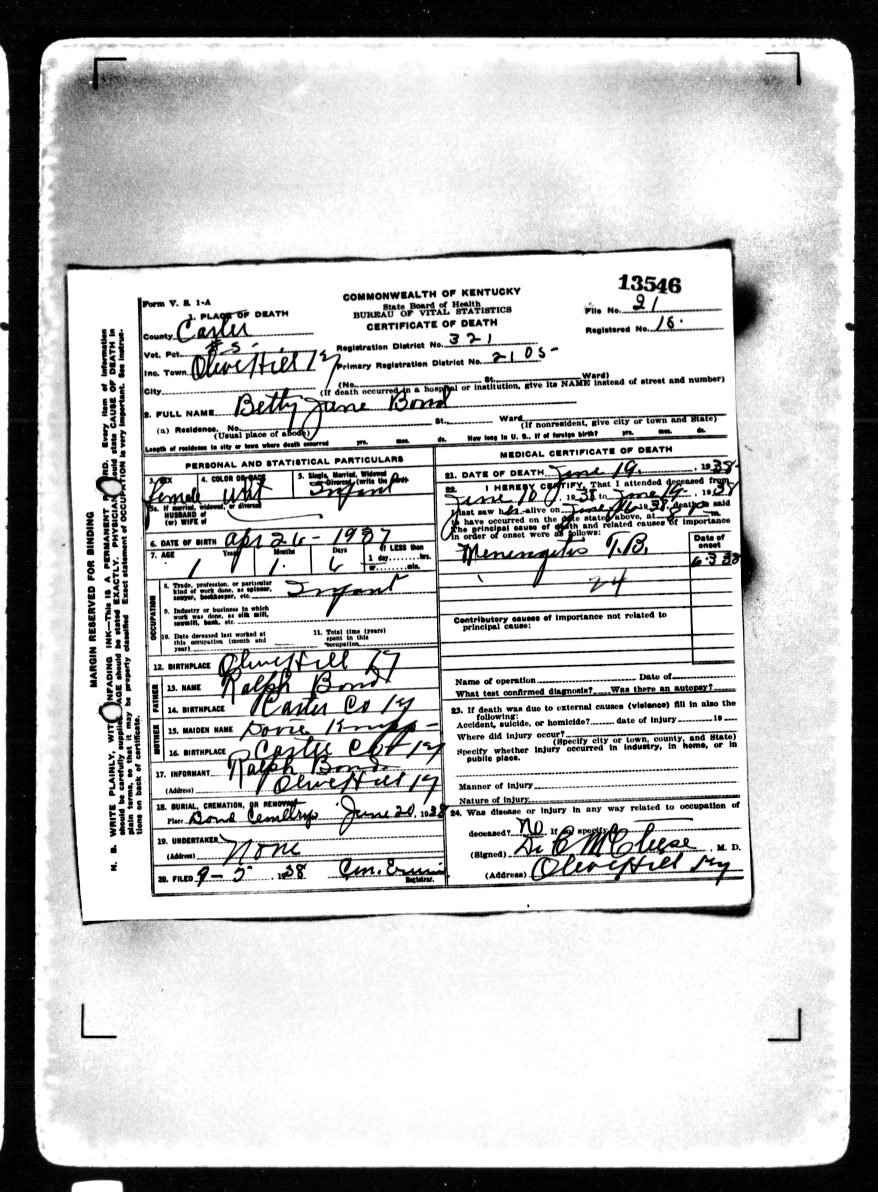 13546
Form V. S. 1-A
COMMONWEALTH OF KENTUCKY
State Board of Health
BUREAU OF VITAL STATISTICS
CERTIFICATE OF DEATH
File No. 21
Registered No. 15.
1. PLACE OF DEATH
County Carter
Vot. Pct. #5-
Registration District No. 321
Inc. Town Olive Hill Ky
Primary Registration District No. 2105-
City
(No. St. Ward)
(If death occurred in a hospital or institution, give its NAME instead of street and number)
2. FULL NAME Betty Jane Bond
(a) Residence. No. St., Ward
(Usual place of abode)
(If nonresident, give city or town and State)
Length of residence in city or town where death occurred yrs. mos. ds. How long in U. S., if of foreign birth? yrs. mos. ds.
PERSONAL AND STATISTICAL PARTICULARS
3. SEX female
4. COLOR OR RACE
5. Single, Married, Widowed or Divorced (write the word) Infant
5a. If married, widowed, or divorced
HUSBAND of
(or) WIFE of
6. DATE OF BIRTH Apr 26 - 1937
7. AGE Years Months Days If LESS than
1 1 6 1 day hrs.
or min.
OCCUPATION
8. Trade, profession, or particular kind of work done, as spinner, sawyer, bookkeeper, etc. Infant
9. Industry or business in which work was done, as silk mill, sawmill, bank, etc.
10. Date deceased last worked at this occupation (month and year)
11. Total time (years) spent in this occupation
12. BIRTHPLACE Olive Hill Ky
FATHER
13. NAME Ralph Bond
14. BIRTHPLACE Carter Co Ky
MOTHER
15. MAIDEN NAME Dovie
16. BIRTHPLACE Carter Ky
17. INFORMANT Ralph Bond
(Address) Olive Hill Ky
18. BURIAL, CREMATION, OR REMOVAL
Place Bond Cemetery June 20, 1938
19. UNDERTAKER None
(Address)
20. FILED 9-5 1938
Registrar.
MEDICAL CERTIFICATE OF DEATH
21. DATE OF DEATH June 19. , 1938
22. I HEREBY CERTIFY, That I attended deceased from
June 10, 1938 to June 19, 1938
I last saw h alive on June 1938, death is said
to have occurred on the date stated above, at
The principal cause of death and related causes of importance
in order of onset were as follows:
Date of onset
Meningitis T.B. 6-3-38
24
Contributory causes of importance not related to
principal cause:
Name of operation Date of
What test confirmed diagnosis? Was there an autopsy?
23. If death was due to external causes (violence) fill in also the
following:
Accident, suicide, or homicide? date of injury 19
Where did injury occur?
(Specify city or town, county, and State)
Specify whether injury occurred in industry, in home, or in
public place.
Manner of injury
Nature of injury
24. Was disease or injury in any way related to occupation of
deceased? No If so, specify
(Signed) M. D.
(Address) Olive Hill Ky
MARGIN RESERVED FOR BINDING
N. B. WRITE PLAINLY, WITH UNFADING INK—THIS IS A PERMANENT RECORD. Every item of information
should be carefully supplied. AGE should be stated EXACTLY. PHYSICIANS should state CAUSE OF DEATH in
plain terms, so that it may be properly classified. Exact statement of OCCUPATION is very important. See instruc-
tions on back of certificate.